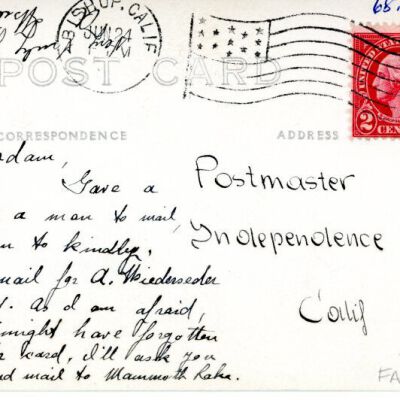 65
BISHOP, CALIF
JUN 24
POST CARD
UNITED STATES
2 CEN
CORRESPONDENCE
ADDRESS
dam,
Gave a
a man to mail,
to kindly,
mail for A. Wiederseder
. As I am afraid,
might have forgotten
card, I'll ask you
mail to Mammoth Lake.
Postmaster
Independence
Calif
FA